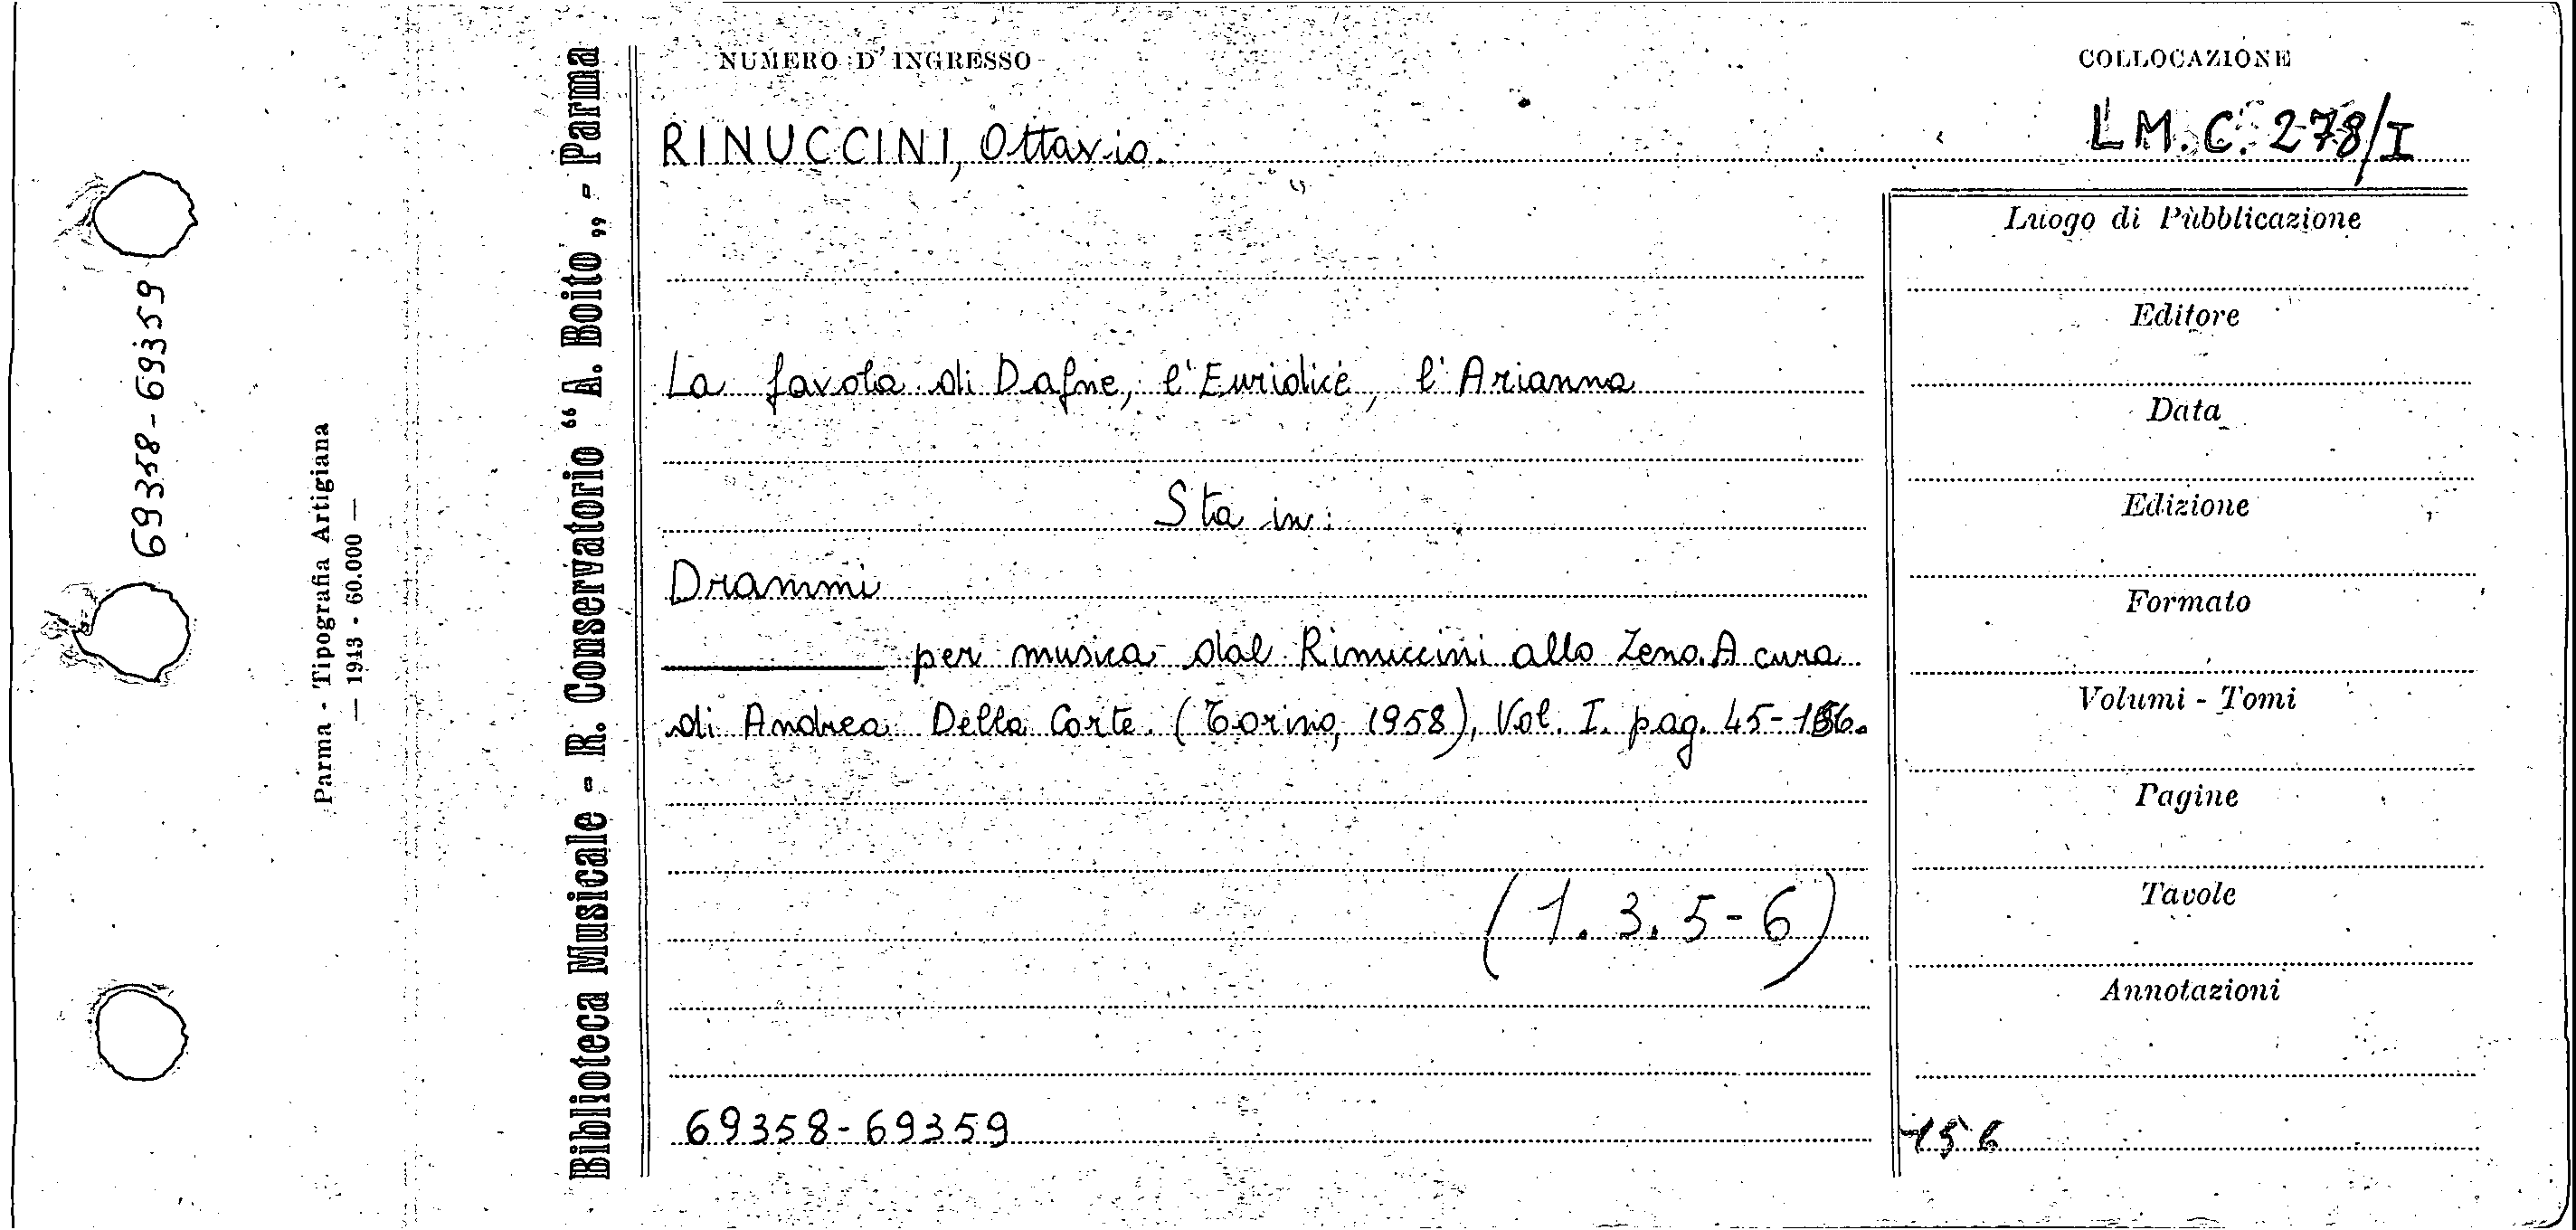 69358-69359
Parma - Tipografia Artigiana
— 1943 - 60.000 —
Biblioteca Musicale - R. Conservatorio “A. Boito„ - Parma
NUMERO D'INGRESSO
COLLOCAZIONE
RINUCCINI, Ottavio.
LM. C. 278/I
La favola di Dafne, l'Euridice, l'Arianna
Sta in:
Drammi
per musica dal Rinuccini allo Zeno. A cura
di Andrea Della Corte. (Torino, 1958), Vol. I. pag. 45-156.
(1. 3. 5-6)
69358-69359
Luogo di Pubblicazione
Editore
Data
Edizione
Formato
Volumi - Tomi
Pagine
Tavole
Annotazioni
156